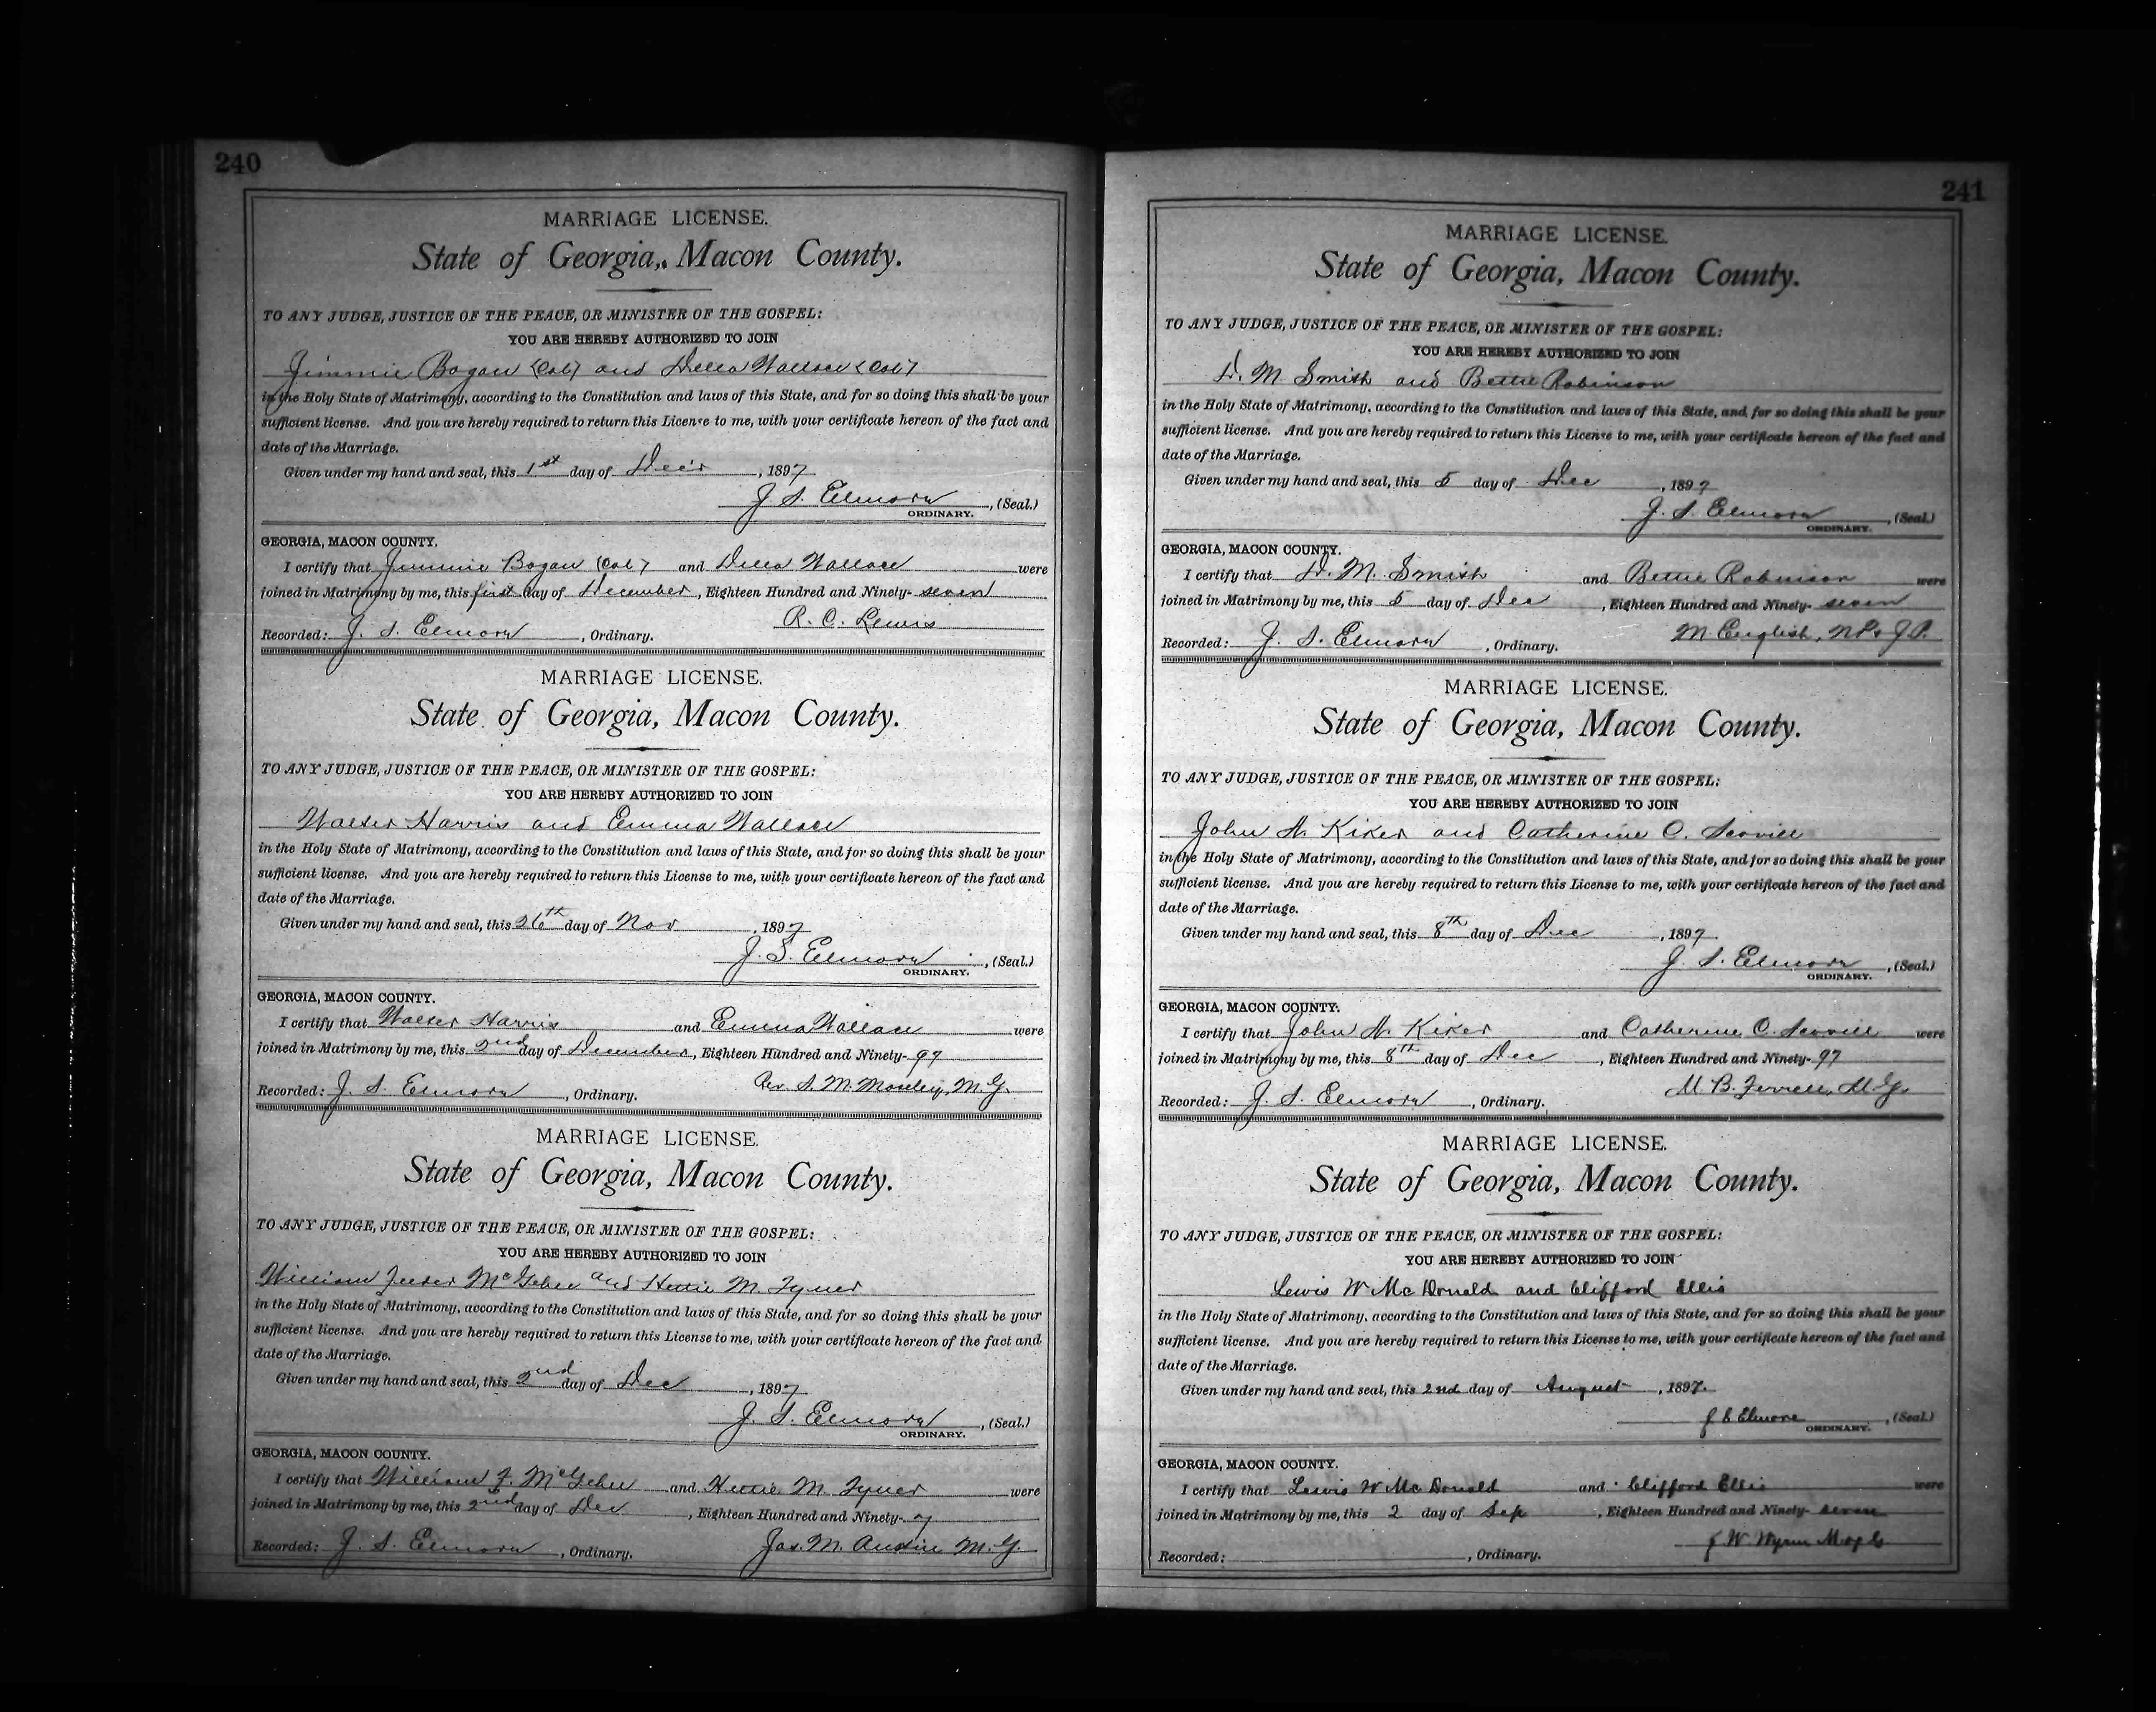 240
MARRIAGE LICENSE.
State of Georgia, Macon County.
TO ANY JUDGE, JUSTICE OF THE PEACE, OR MINISTER OF THE GOSPEL:
YOU ARE HEREBY AUTHORIZED TO JOIN
Jimmie Bogan (Col) and Della Wallace (Col)
in the Holy State of Matrimony, according to the Constitution and laws of this State, and for so doing this shall be your
sufficient license. And you are hereby required to return this License to me, with your certificate hereon of the fact and
date of the Marriage.
Given under my hand and seal, this 1st day of Decr, 1897
J. S. Elmore, (Seal.)
ORDINARY.
GEORGIA, MACON COUNTY.
I certify that Jimmie Bogan (Col) and Della Wallace were
joined in Matrimony by me, this first day of December, Eighteen Hundred and Ninety-seven
R. C. Lewis
Recorded: J. S. Elmore, Ordinary.
MARRIAGE LICENSE.
State of Georgia, Macon County.
TO ANY JUDGE, JUSTICE OF THE PEACE, OR MINISTER OF THE GOSPEL:
YOU ARE HEREBY AUTHORIZED TO JOIN
Walter Harris and Emma Wallace
in the Holy State of Matrimony, according to the Constitution and laws of this State, and for so doing this shall be your
sufficient license. And you are hereby required to return this License to me, with your certificate hereon of the fact and
date of the Marriage.
Given under my hand and seal, this 26th day of Nov, 1897
J. S. Elmore, (Seal.)
ORDINARY.
GEORGIA, MACON COUNTY.
I certify that Walter Harris and Emma Wallace were
joined in Matrimony by me, this 2nd day of December, Eighteen Hundred and Ninety-97
Rev. S. M. Mosley, M. G.
Recorded: J. S. Elmore, Ordinary.
MARRIAGE LICENSE.
State of Georgia, Macon County.
TO ANY JUDGE, JUSTICE OF THE PEACE, OR MINISTER OF THE GOSPEL:
YOU ARE HEREBY AUTHORIZED TO JOIN
William McGehee and Hettie M. Tyner
in the Holy State of Matrimony, according to the Constitution and laws of this State, and for so doing this shall be your
sufficient license. And you are hereby required to return this License to me, with your certificate hereon of the fact and
date of the Marriage.
Given under my hand and seal, this 2nd day of Dec, 1897
J. S. Elmore, (Seal.)
ORDINARY.
GEORGIA, MACON COUNTY.
I certify that William F. McGehee and Hettie M. Tyner were
joined in Matrimony by me, this 2nd day of Dec, Eighteen Hundred and Ninety-7
Recorded: J. S. Elmore, Ordinary. Jas. M. Austin M. G.
241
MARRIAGE LICENSE.
State of Georgia, Macon County.
TO ANY JUDGE, JUSTICE OF THE PEACE, OR MINISTER OF THE GOSPEL:
YOU ARE HEREBY AUTHORIZED TO JOIN
D. M. Smith and Bettie Robinson
in the Holy State of Matrimony, according to the Constitution and laws of this State, and for so doing this shall be your
sufficient license. And you are hereby required to return this License to me, with your certificate hereon of the fact and
date of the Marriage.
Given under my hand and seal, this 5 day of Dec, 1897
J. S. Elmore, (Seal.)
ORDINARY.
GEORGIA, MACON COUNTY.
I certify that D. M. Smith and Bettie Robinson were
joined in Matrimony by me, this 5 day of Dec, Eighteen Hundred and Ninety-seven
M. English, N.P. & J.P.
Recorded: J. S. Elmore, Ordinary.
MARRIAGE LICENSE.
State of Georgia, Macon County.
TO ANY JUDGE, JUSTICE OF THE PEACE, OR MINISTER OF THE GOSPEL:
YOU ARE HEREBY AUTHORIZED TO JOIN
John N. Kiker and Catherine C. Scovill
in the Holy State of Matrimony, according to the Constitution and laws of this State, and for so doing this shall be your
sufficient license. And you are hereby required to return this License to me, with your certificate hereon of the fact and
date of the Marriage.
Given under my hand and seal, this 8th day of Dec, 1897
J. S. Elmore, (Seal.)
ORDINARY.
GEORGIA, MACON COUNTY.
I certify that John N. Kiker and Catherine C. Scovill were
joined in Matrimony by me, this 8th day of Dec, Eighteen Hundred and Ninety-97
M. B. Ferrell, M. G.
Recorded: J. S. Elmore, Ordinary.
MARRIAGE LICENSE.
State of Georgia, Macon County.
TO ANY JUDGE, JUSTICE OF THE PEACE, OR MINISTER OF THE GOSPEL:
YOU ARE HEREBY AUTHORIZED TO JOIN
Lewis W McDonald and Clifford Ellis
in the Holy State of Matrimony, according to the Constitution and laws of this State, and for so doing this shall be your
sufficient license. And you are hereby required to return this License to me, with your certificate hereon of the fact and
date of the Marriage.
Given under my hand and seal, this 2nd day of August, 1897.
J S Elmore, (Seal.)
ORDINARY.
GEORGIA, MACON COUNTY.
I certify that Lewis W McDonald and Clifford Ellis were
joined in Matrimony by me, this 2 day of Sep, Eighteen Hundred and Ninety-seven
J W Wynn
Recorded: , Ordinary.